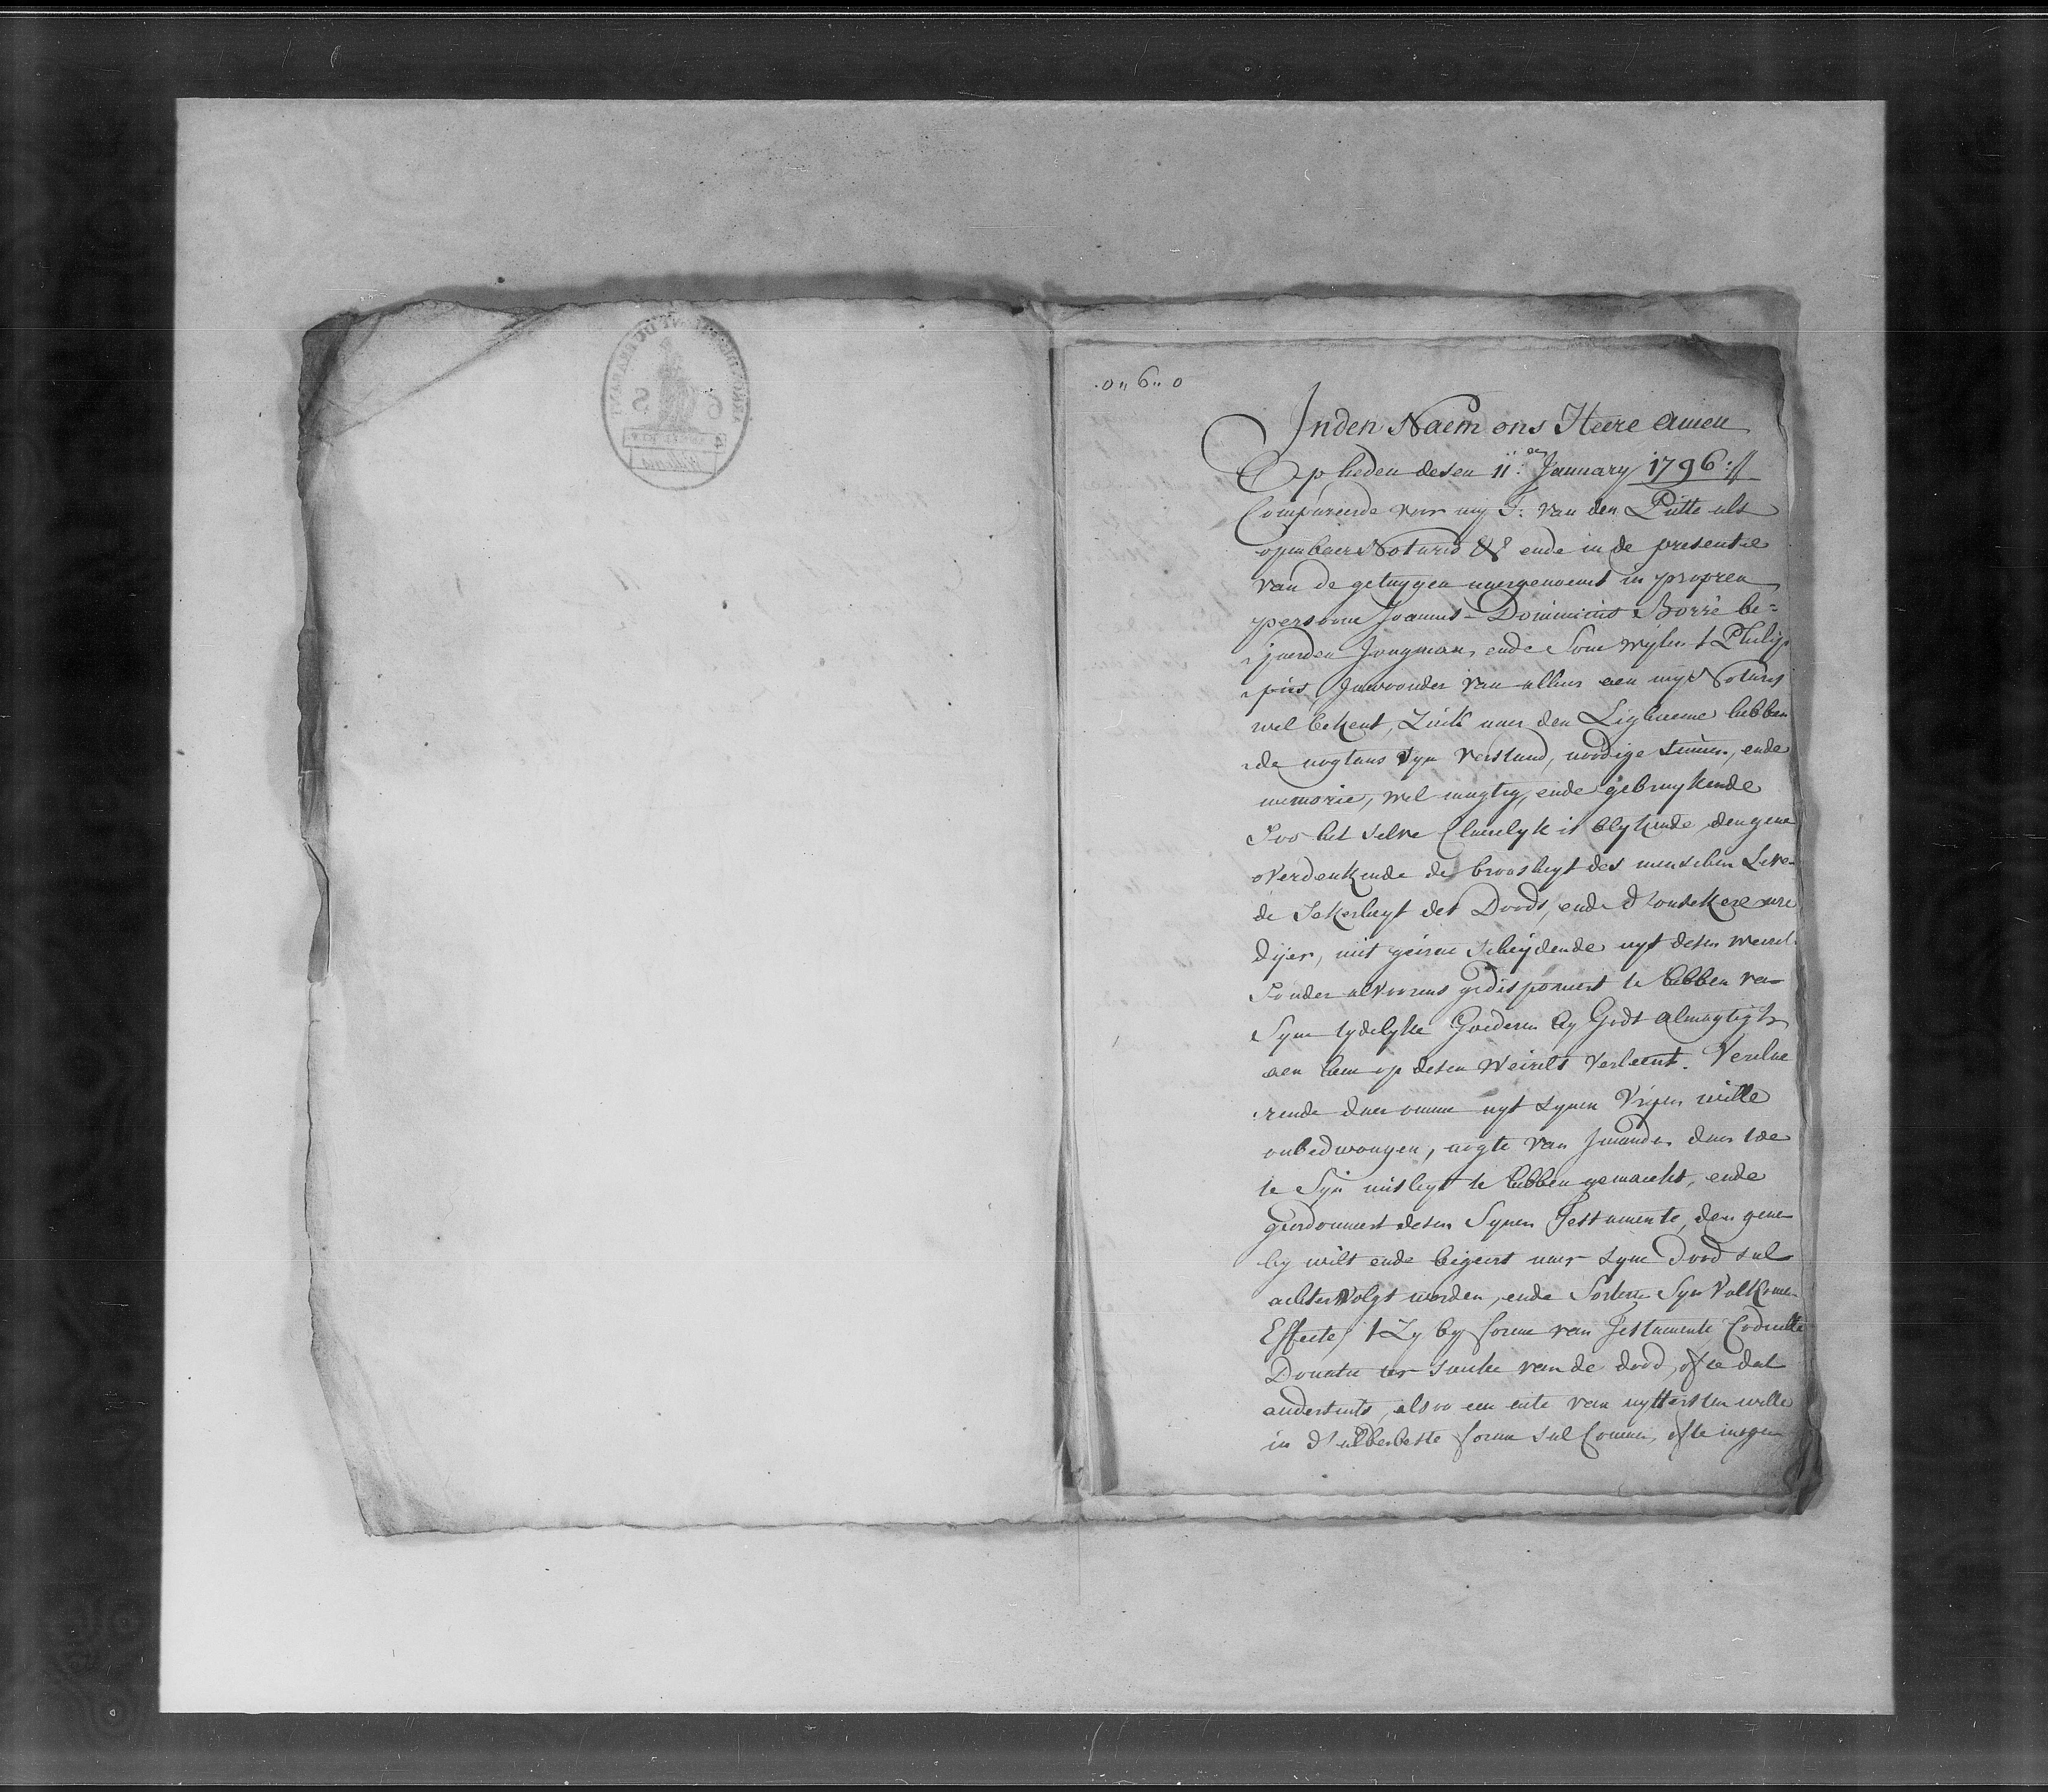 .0,, 6,, 0
Inden Naem ons Heere amen
Op heden desen 11.en January 1796://
Compareerde voor my J: van den Putte als
openbaer Notaris &c ende in de presentie
van de getuygen naergenoemt in propren
persoone Joannes-Dominicus Borré be=
jaerden Jongman, ende Sone wylen t Philip
pus, Inwoonder van alhier aen my Notaris
wel bekent, Zieck naer den Lighaeme hebben
de nogtans Syn verstand, noodige sinnen, ende
memorie, wel magtig, ende gebruykende
Soo het selve Claerelyk is blykende, dengene
overdenkende de broosheyt des menschen Leve
de Sekerheyt des Doods, ende d'onsekere ure
dijer, niet geirne Scheydende uyt desen weirel
Sonder alvoorens gedisponeert te hebben va
Syne tydelyke Goederen by Godt almagtigh
aen hem op desen weirelt verleent. Verclae
rende daeromme uyt synen vryen wille
onbedwongen, nogte van Jmanden daer toe
te Syn misleyt te hebben gemaeckt, ende
geordonneert desen Synen Testamente, den gene
hy wilt ende begeirt naer syne dood sal
achtervolgt worden, ende Sorteren Syn Volkomen
Effecte, t Zy by forme van Testamente Codicille
Donatie ter saeke van de dood, ofte dat
andersints, alsoo een acte van uyttersten wille
in d'alderbeste forme sal Connen, ofte mogen